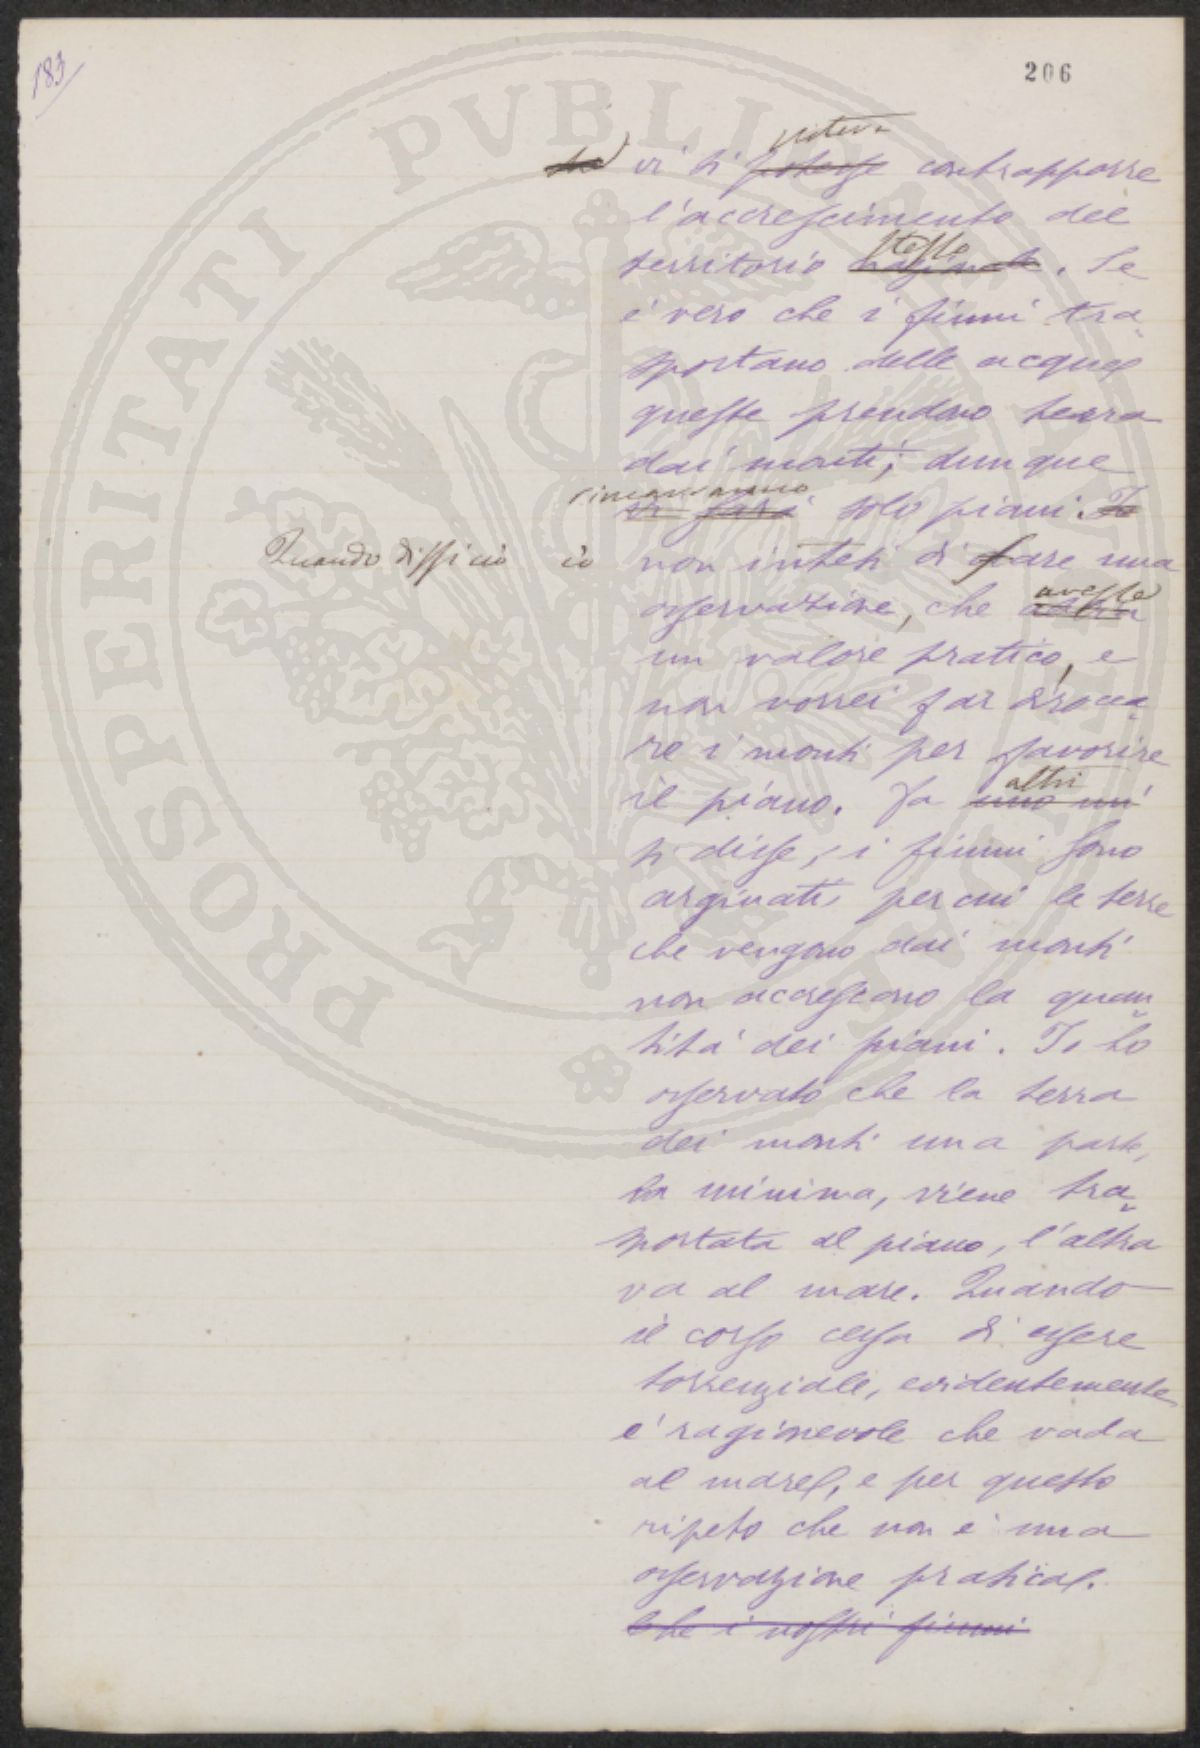 183
206
vi si potesse poteva contrapporre
l'accrescimento del
territorio nazionale stesso. Se
è vero che i fiumi tra-
sportano delle acque
queste prendono terra
dai monti; dunque
vi sarà rimarranno solo piani. Io
Quando dissi ciò io non intesi di fare una
osservazione, che avesse
un valore pratico, e
non vorrei far dirocca-
re i monti per favorire
il piano. Ja uno mi altri
si disse, i fiumi sono
arginati per cui le terre
che vengono dai monti
non accrescono la quan-
tità dei piani. Io ho
osservato che la terra
dei monti una parte,
la minima, viene tra-
sportata al piano, l'altra
va al mare. Quando
il corso cessa di essere
torrenziale, evidentemente
è ragionevole che vada
al mare, e per questo
ripeto che non è una
osservazione pratica.
Che i nostri fiumi
PROSPERITATI PVBLICAE